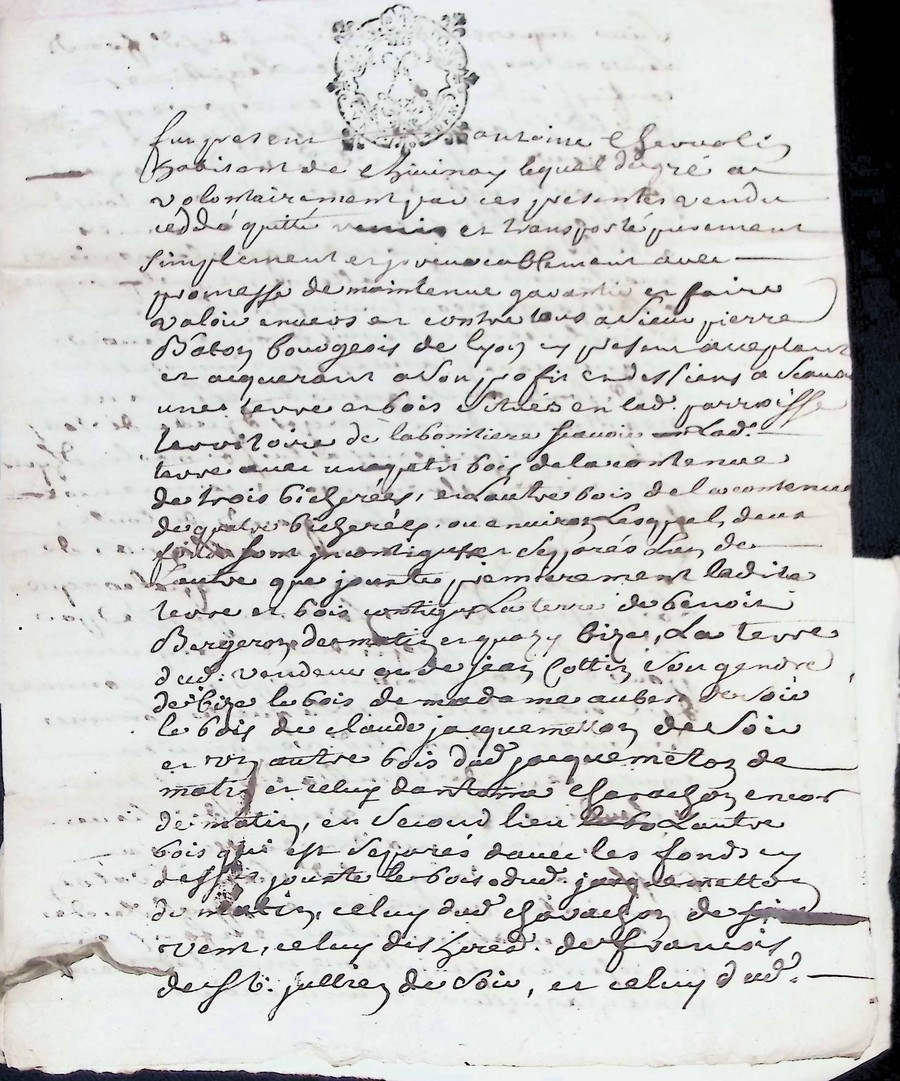 fut present antoine Chervolin
habitant de Chivinay lequel de gré a
volontairement par ces presentes vendu
ceddé quitté remis et transporté purement
simplement et jrrevocablement avec
promesse de maintenue garantie et faire
valoir envers et contre tous a sieur pierre
Baton bourgeois de lyon cy present acceptant
et acquerant a son profit et des siens a scavoir
une terre et bois situés en lad. parroisse
territoire de labontiere scavoir lad.
terre avec un petit bois de la contenue
de trois bicherées, et L'autre bois de la contenue
de quatre bicherées ou environ Lesquels deux
fonds sont et separés L'un de
L'autre que jouxte premierement ladite
terre et bois contigu La terre de benoit
Bergeron de matin et quazy bize, La terre
dud. vendeur de jean Cottin son gendre
de bize le bois de madame aubert de soir
le bois de claude jacquemetton de soir
et un autre bois dud. jacquemeton de
matin et celuy dantoine Chavachon encor
de matin, en second lieu L'autre
bois qui est separés davec les fonds cy
dessus jouxte le bois dud. jacquemetton
de matin, celuy dud. Chavachon de
vent, celuy des hered. de francois
de St. jullien de soir, et celuy dud.